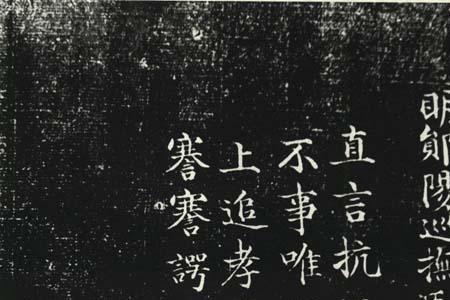 明鄖陽巡撫
直言抗
不事唯
上追孝
謇謇諤